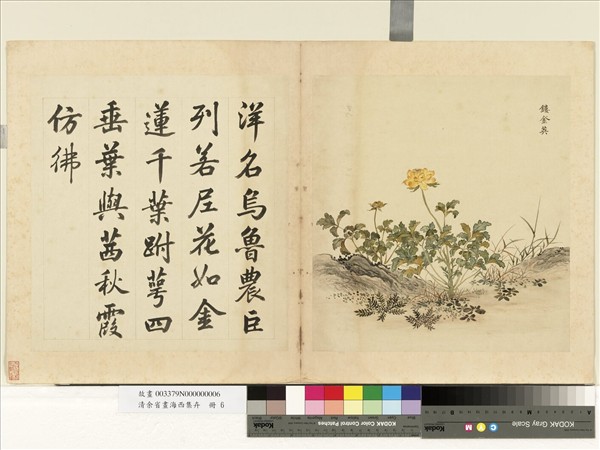 鏤金英
洋名烏魯農巨
列若尼花如金
蓮千葉跗萼四
垂葉與茜秋霞
仿彿
故畫 003379N000000006
清余省畫海西集卉 冊 6
Kodak
KODAK Color Control Patches
Kodak
KODAK Gray Scale
C Y M